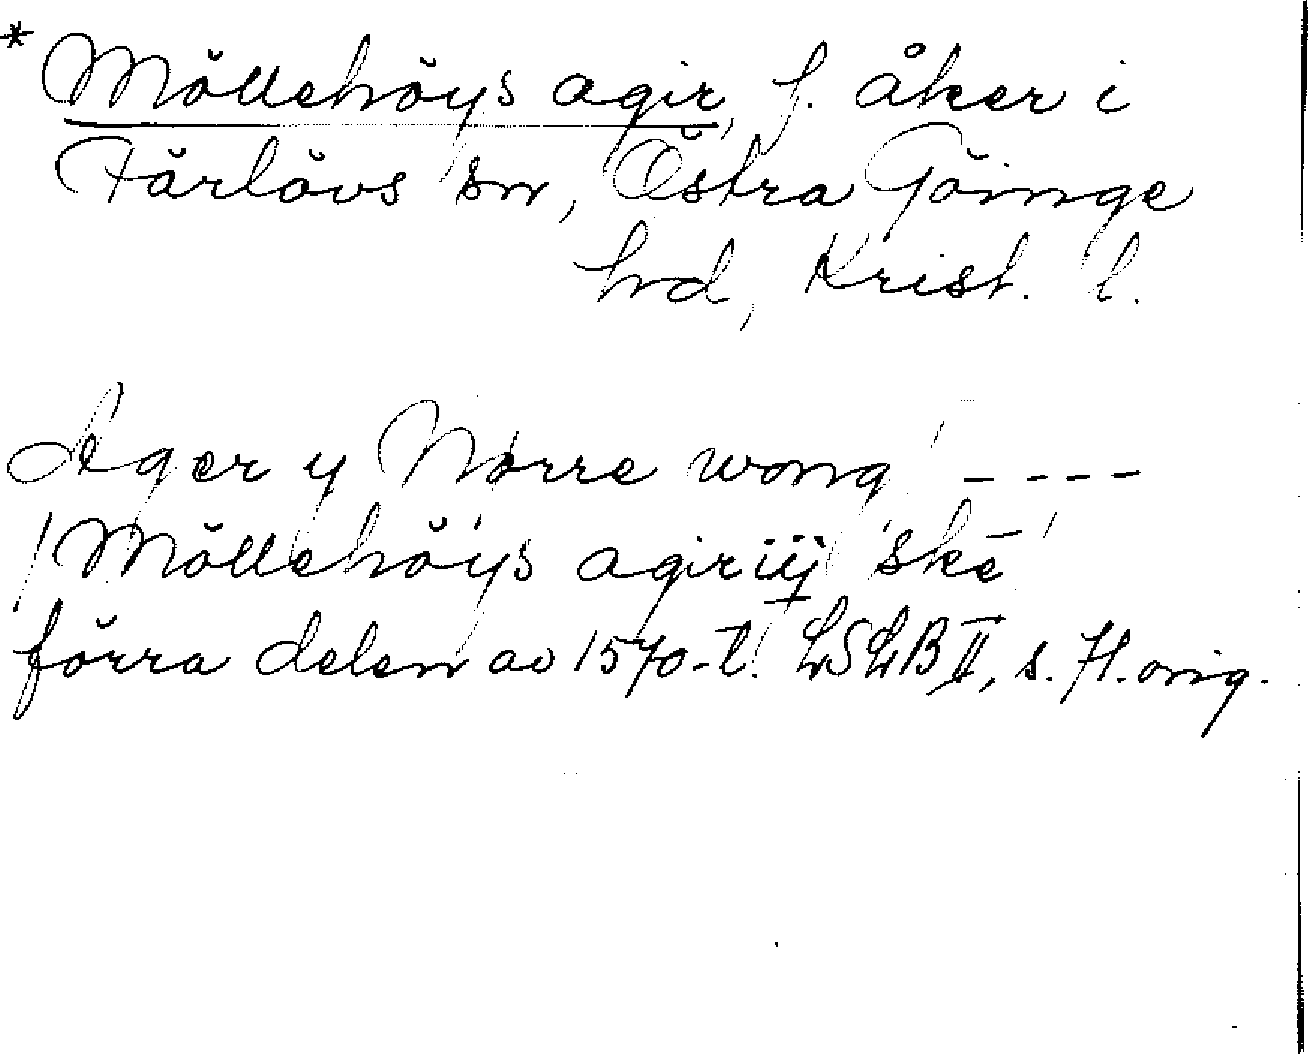 * Möllehöys agir, f. åker i
Färlövs sn, Östra Göinge
hd, Krist. l.
Ager y Nørre wong ----
Möllehöys agir iij ske
förra delen av 1570-t. LSLB II, s. 71. orig.